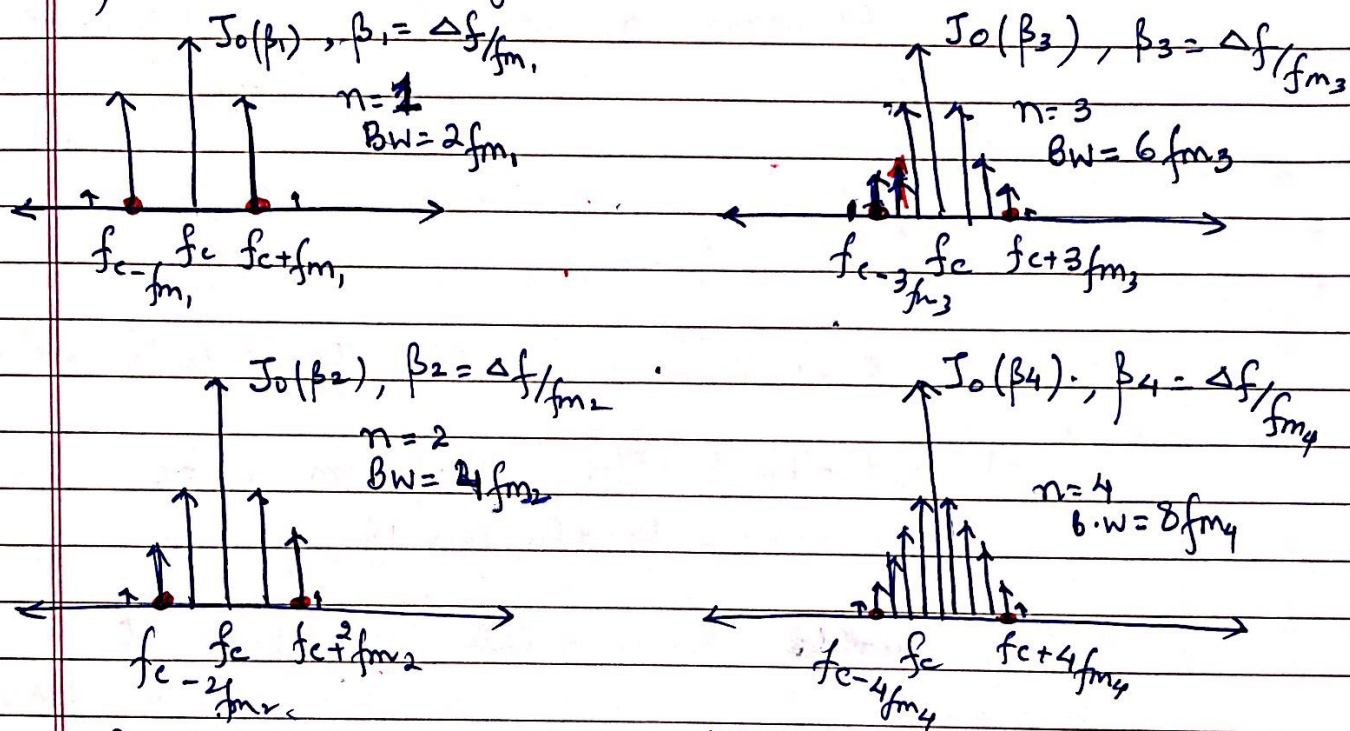 J₀(β₁), β₁ = Δf/fm₁
n=1
BW = 2fm₁
fc-fm₁ fc fc+fm₁
J₀(β₃), β₃ = Δf/fm₃
n=3
BW = 6fm₃
fc-3fm₃ fc fc+3fm₃
J₀(β₂), β₂ = Δf/fm₂
n=2
BW = 4fm₂
fc-2fm₂ fc fc+2fm₂
J₀(β₄), β₄ = Δf/fm₄
n=4
B.W = 8fm₄
fc-4fm₄ fc fc+4fm₄